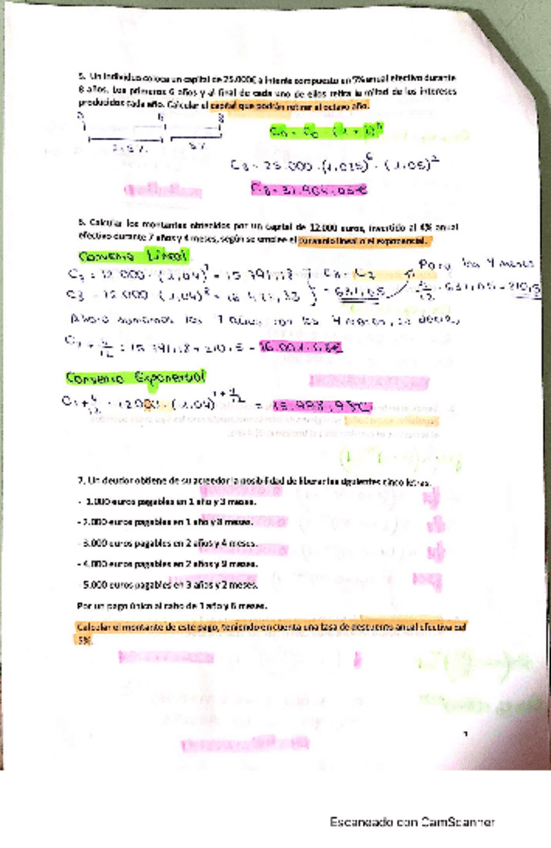 5. Un individuo coloca un capital de 25.000€ a interés compuesto en 7% anual efectivo durante
8 años. Los primeros 6 años y al final de cada uno de ellos retira la mitad de los intereses
producidos cada año. Calcular el capital que podrán retirar al octavo año.
0 6 8
C₈ = 25.000 · (1,035)⁶ · (1,05)²
C₈ = 31.404,05€
6. Calcular los montantes obtenidos por un capital de 12.000 euros, invertido al 4% anual
efectivo durante 7 años y 4 meses, según se emplee el convenio lineal o el exponencial.
Convenio Lineal
Para los 4 meses
C₇ = 12.000 · (1,04)⁷ = 15.791,18
C₈ - C₇
C₈ = 12.000 · (1,04)⁸ = 16.422,83
= 631,65
4/12 · 631,65 = 210,5
Ahora sumamos los 7 años con los 4 meses, es decir,
C₇ + 4/12 = 15.791,18 + 210,5 = 16.001,68€
Convenio Exponencial
C₇ + 4/12 = 12000 · (1,04)⁷⁺⁴/¹² = 15.998,98€
7. Un deudor obtiene de su acreedor la posibilidad de liberar las siguientes cinco letras.
- 1.000 euros pagables en 1 año y 3 meses.
- 2.000 euros pagables en 1 año y 8 meses.
- 3.000 euros pagables en 2 años y 4 meses.
- 4.000 euros pagables en 2 años y 9 meses.
- 5.000 euros pagables en 3 años y 2 meses.
Por un pago único al cabo de 1 año y 6 meses.
Calcular el montante de este pago, teniendo en cuenta una tasa de descuento anual efectiva del
5%.
Escaneado con CamScanner